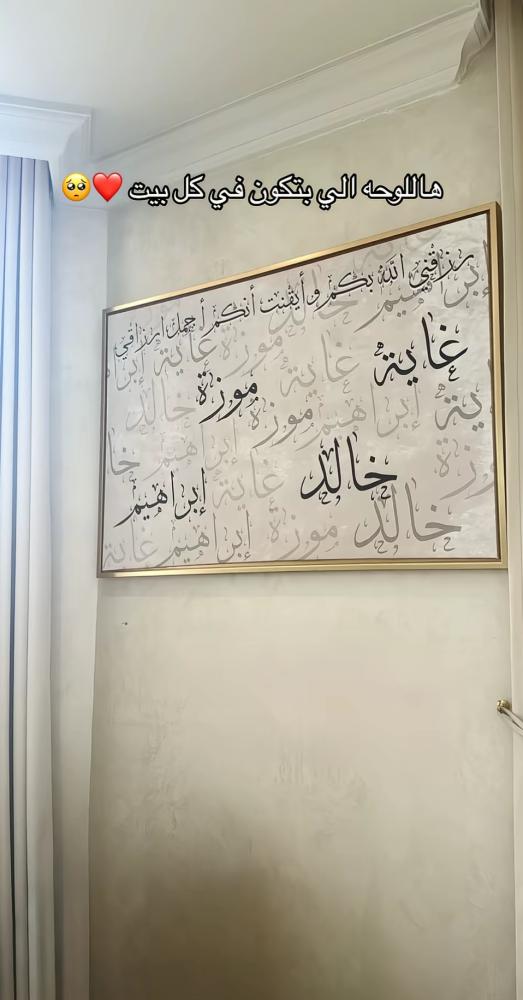 هاللوحه الي بتكون في كل بيت ❤️🥺
رزقني الله بكم وأيقنت أنكم أجمل ارزاقي
غاية
موزة
خالد
إبراهيم
إبراهيم
خالد
موزة
غاية
إبرا
غاية
موزة
غاية
خالد
موزة
إبراهيم
ية
خا
غاية
وزة
غاية
إبراهيم
موزة
خالد